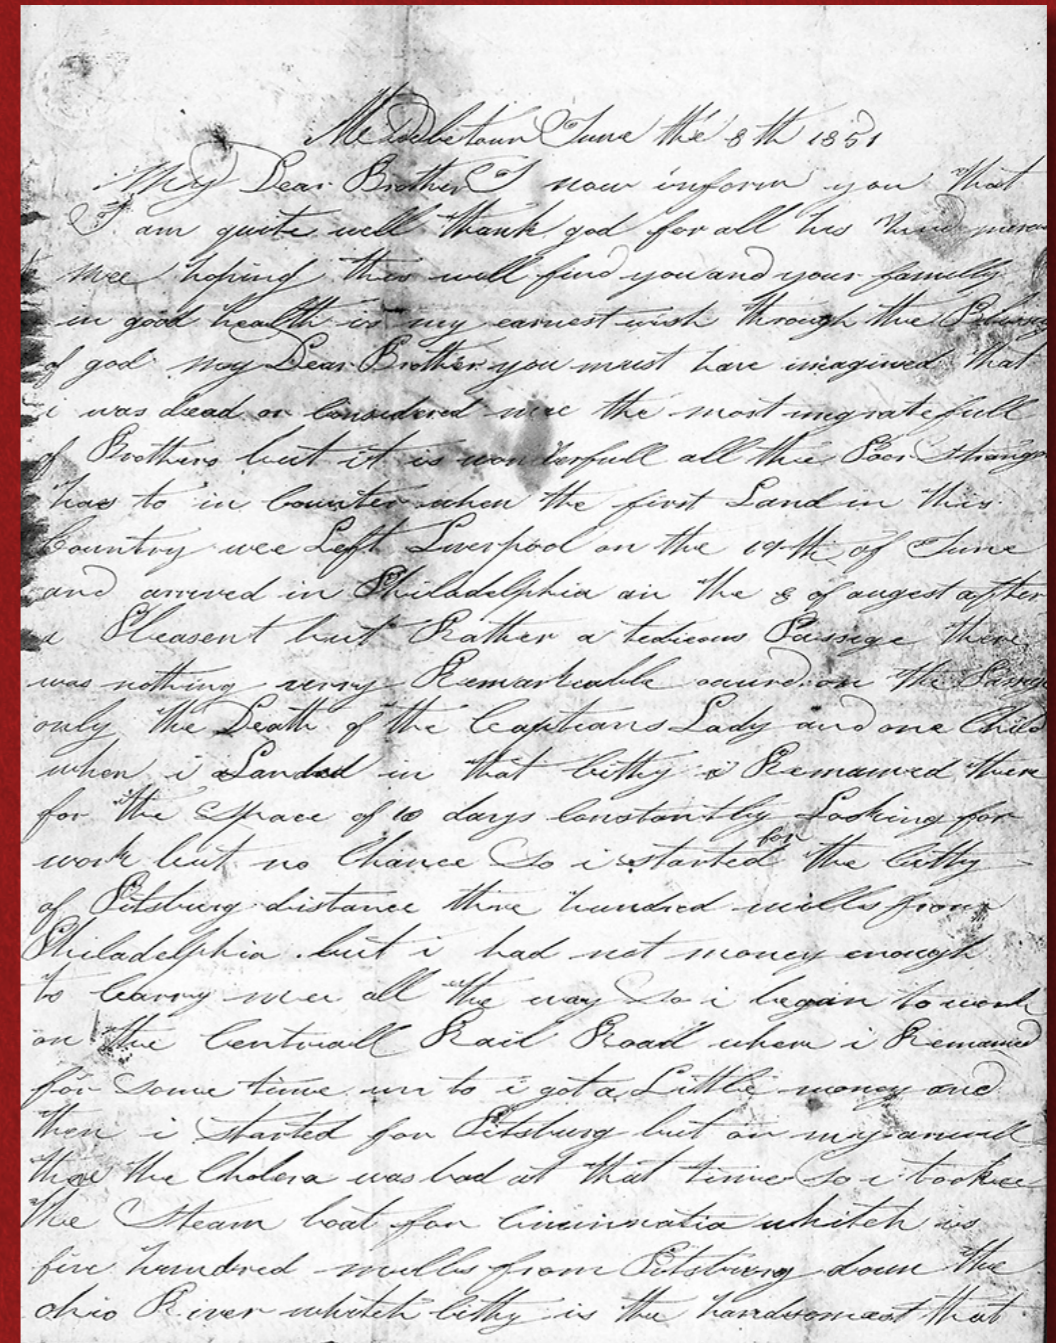 Middletown June the 8th 1851
My Dear Brother I now inform you that
I am quite well thank god for all his kind
mee hoping this will find you and your familly
in good health is my earnest wish through the
of god my Dear Brother you must have imagined that
i was dead or Considered mee the most ungratefull
of Brothers but it is wonderfull all the Poor
has to in Counter when the first Land in this
Country wee Left Liverpool on the 19th of June
and arrived in Philadelphia on the 8 of augest after
a Pleasent but Rather a tedious Passige there
was nothing verry Remarkable on the
only the Death of the Captians Lady and one Child
when i Landed in that Citty i Remained there
for the Space of 10 days Constantly Looking for
work but no Chance So i started for the Citty
of Pitsburg distance three hundred mills from
Philadelphia but i had not money enough
to Carry mee all the way So i began to work
on the Centrall Rail Road where i Remained
for Some time un to i got a Little money and
then i started for Pitsburg but on my
there the Cholera was bad at that time So i
the Steam boat for Cincinnatia whitch is
five hundred mills from Pitsburg down the
ohio River whitch Citty is the handsomeast that